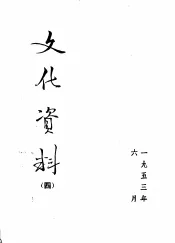 文化資料
(四)
一九五三年
六月